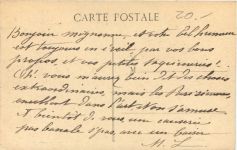 CARTE POSTALE
20.
Bonjour mignonne, et votre bel humeur
est toujours en éveil, par vos bons
propos, et vos petites taquineries!
Ah! vous m'aurez bien dit des choses
extraordinaires, mais les
dans l'est s'amuse
A bientôt de vous une causerie
pas banale avec un baiser
M. L